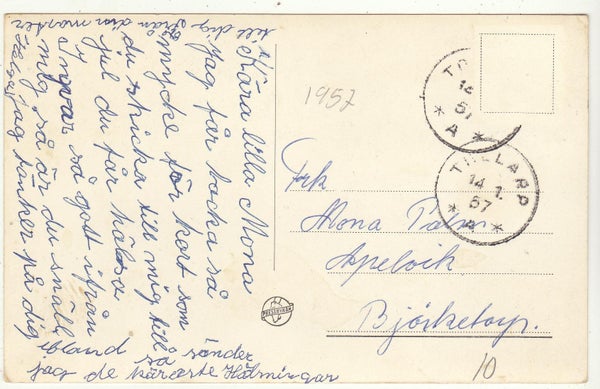 Kära lilla Mona
Jag får tacka så
mycke för kort som
du skicka till mig till
jul du får hälsa
Ingvar så gott ifrån
mig så är du snäll
Jag tänker på dig
ibland så sänder
jag de käraste Hälsningar
till dig från din moster
1957
TILLARP
14 1.
57
* A *
14
57
* A *
Frk
Mona
Apelvik
Björketorp.
10